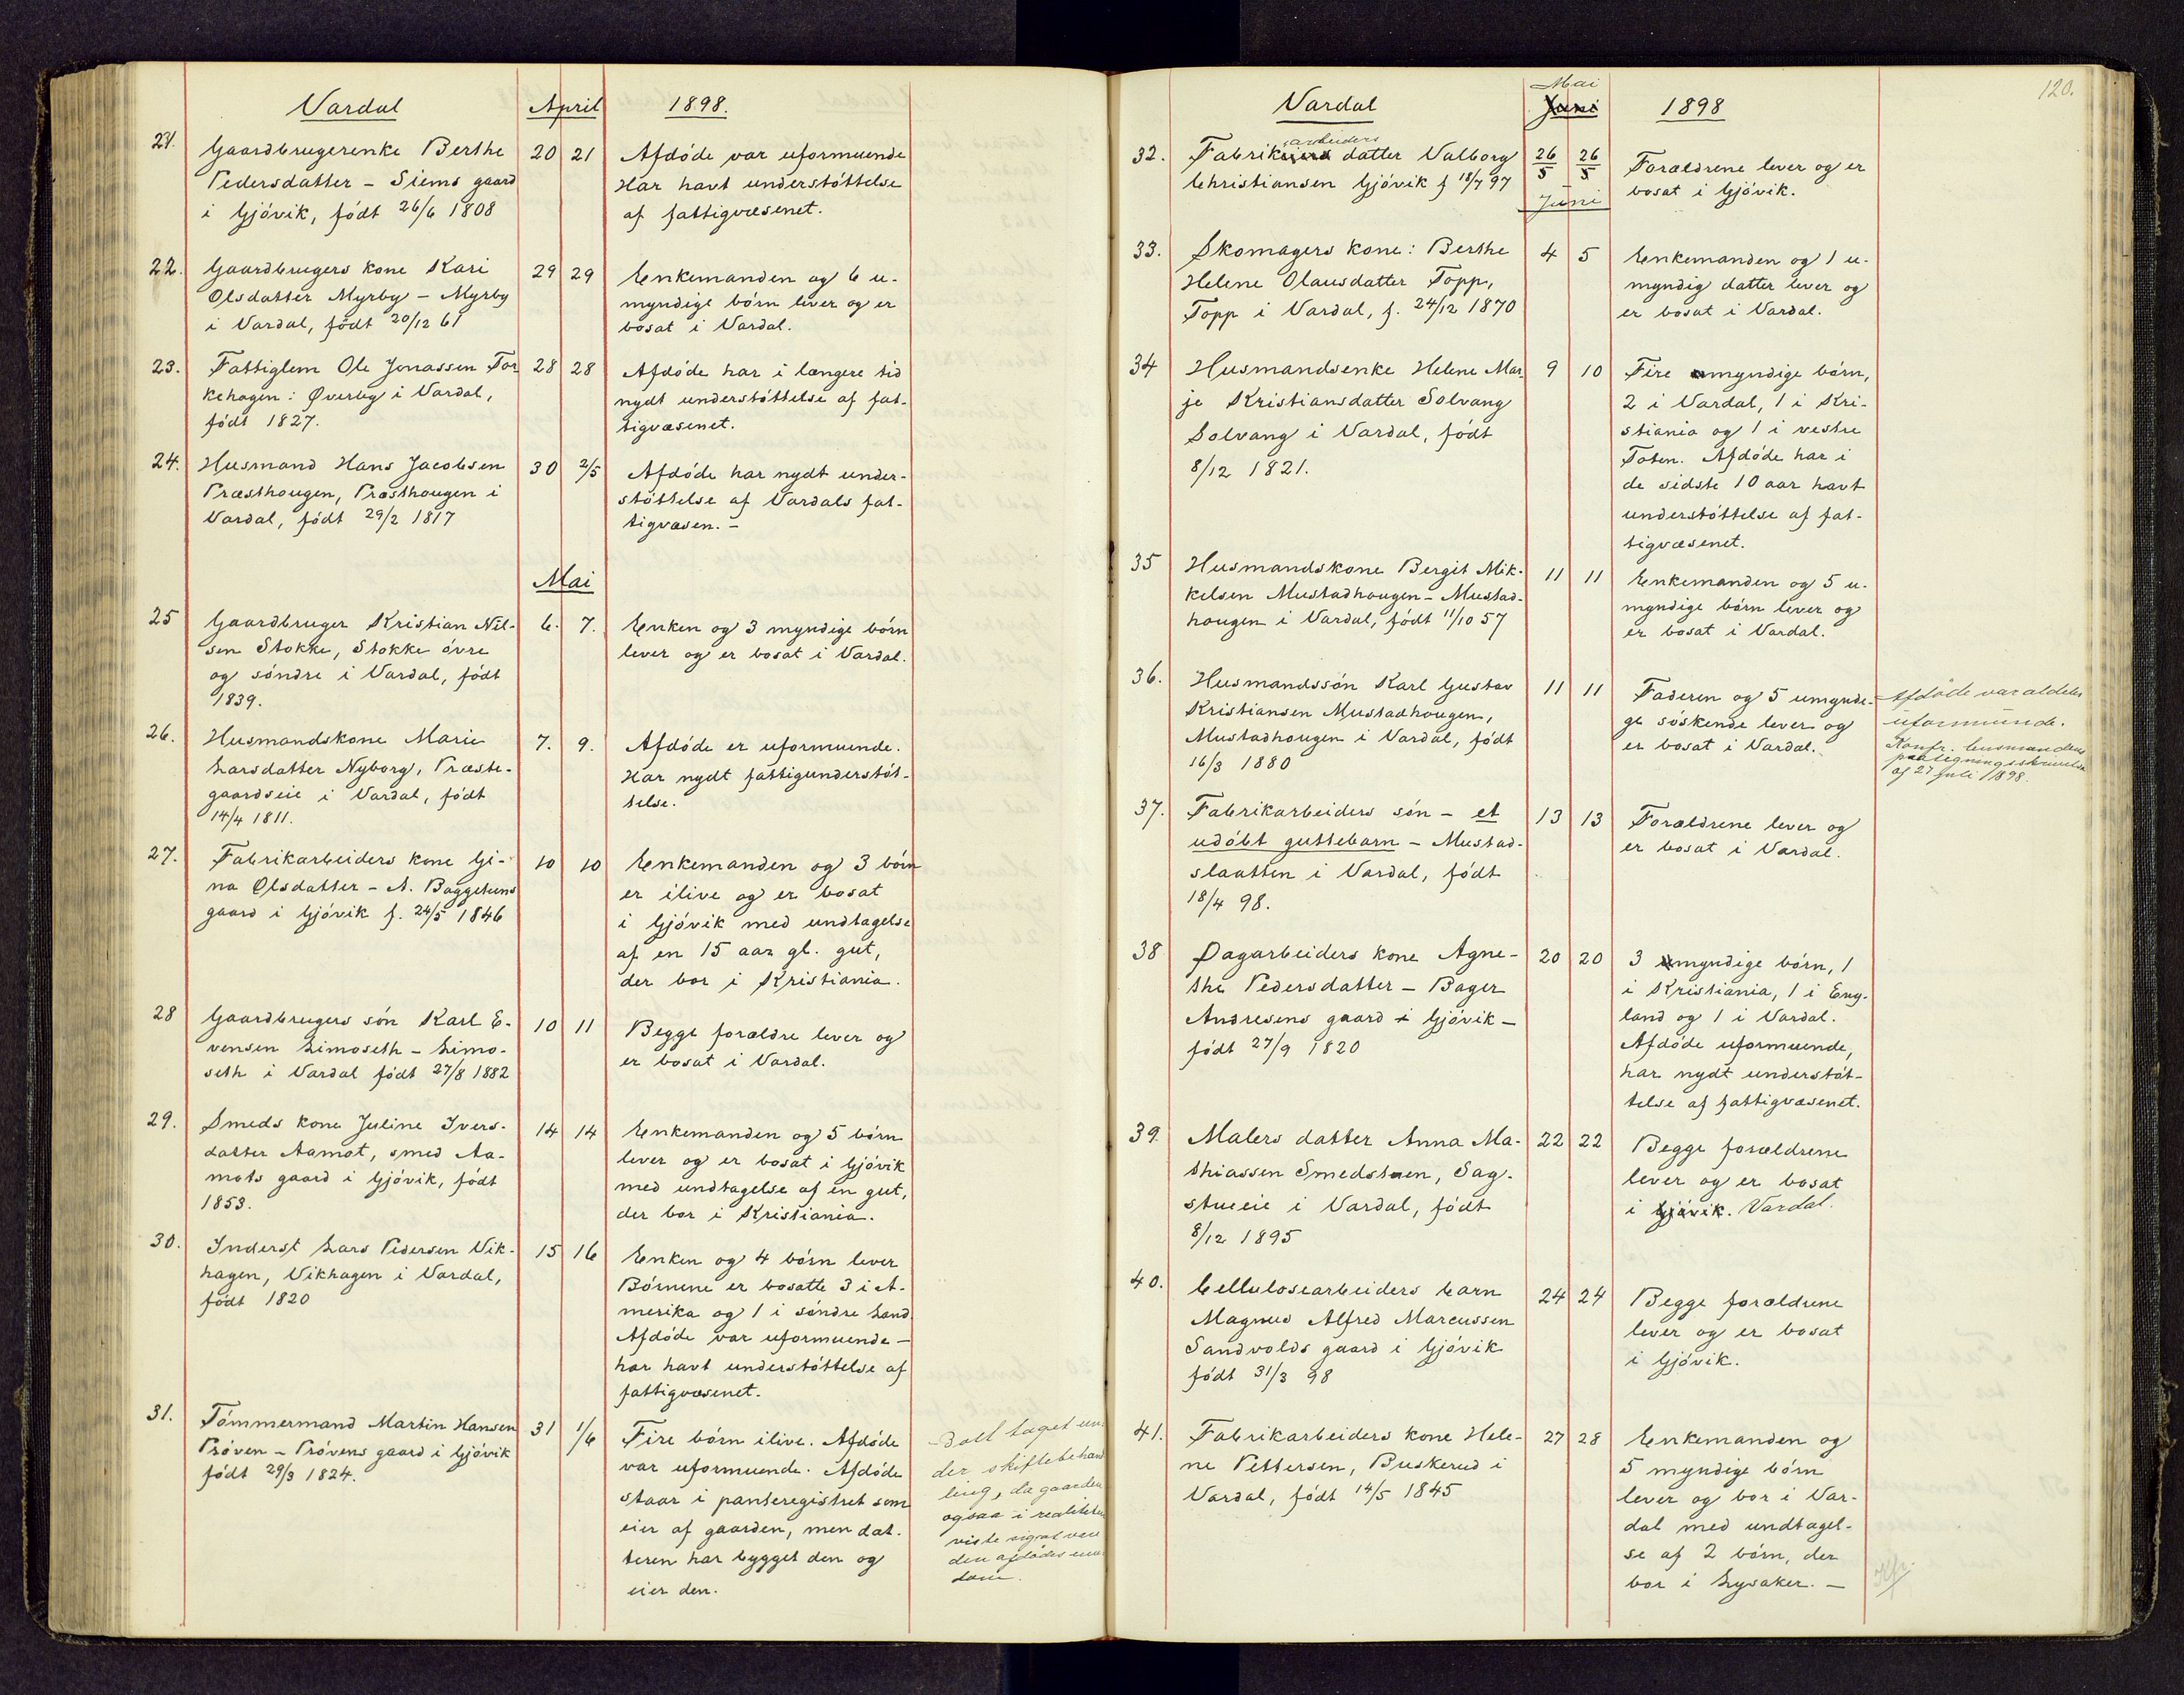 Vardal April 1898.
21. Gaardbrugerenke Berthe 20 21 Afdóde var uformuende
Pedersdatter – Siems gaard Har havt understóttelse
i Gjóvik, födt 26/6 1808 af fattigvæsenet.
22. Gaardbrugers kone Kari 29 29 Enkemanden og 6 u-
Olsdatter Myrby – Myrby myndige börn lever og er
i Vardal, födt 20/12 61 bosat i Vardal.
23. Fattiglem Ole Jonassen Tor 28 28 Afdóde har i længere tid
kehagen: Øverby i Vardal, nydt understóttelse af fat-
födt 1827. tigvæsenet.
24. Husmand Hans Jacobsen 30 2/5 Afdóde har nydt under-
Præsthougen, Præsthougen i stóttelse af Vardals fat-
Vardal, födt 29/2 1817 tigvæsen. –
Mai
25 Gaardbruger Kristian Nil- 6. 7. Enken og 3 myndige börn
sen Stokke, Stokke óvre lever og er bosat i Vardal.
og söndre i Vardal, födt
1839.
26. Husmandskone Marie 7. 9. Afdóde er uformuende.
Larsdatter Nyborg, Præste- Har nydt fattigunderstót-
gaardseie i Vardal, födt telse.
14/4 1811.
27. Fabrikarbeiders kone Gi- 10 10 Enkemanden og 3 börn
na Olsdatter – A. Baggetuns er ilive og er bosat
gaard i Gjóvik f. 24/5 1846 i Gjóvik med undtagelse
af en 15 aar gl. gut,
der bor i Kristiania.
28 Gaardbrugers són Karl E- 10 11 Begge forældre lever og
vensen Limoseth – Limo- er bosat i Vardal.
seth i Vardal födt 27/8 1882
29. Smeds kone Juline Ivers- 14 14 Enkemanden og 5 börn
datter Aamot, smed Aa- lever og er bosat i Gjóvik
mots gaard i Gjóvik, födt med undtagelse af en gut,
1853. der bor i Kristiania.
30. Inderst Lars Pedersen Vik- 15 16 Enken og 4 börn lever
hagen, Vikhagen i Vardal, Börnene er bosatte 3 i A-
födt 1820 merika og 1 i söndre Land.
Afdóde var uformuende –
har havt understóttelse af
fattigvæsenet.
31. Tómmermand Martin Hansen 31 1/6 Fire börn ilive. Afdóde
Próven – Prövens gaard i Gjóvik var uformuende. Afdóde
födt 29/3 1824. staar i panteregistret som
eier af gaarden, men dat-
teren har bygget den og
eier den.
Boet taget un-
der skiftebehand
ling, da gaarden
ogsaa i realiteten
viste sig at være
den afdódes eien-
dom.
120.
Vardal Mai Juni 1898
32. Fabrik arbeiders datter Valborg 26/5 26/5 Forældrene lever og er
Christiansen Gjóvik f 18/7 97 bosat i Gjóvik.
Juni
33. Skomagers kone: Berthe 4 5 Enkemanden og 1 u-
Helene Olausdatter Topp, myndig datter lever og
Topp i Vardal, f. 24/12 1870 er bosat i Vardal.
34 Husmandsenke Helene Mar- 9 10 Fire myndige börn,
je Kristiansdatter Solvang 2 i Vardal, 1 i Kri-
Solvang i Vardal, födt stiania og 1 i vestre
8/12 1821. Toten. Afdóde har i
de sidste 10 aar havt
understóttelse af fat-
tigvæsenet.
35 Husmandskone Bergit Mik- 11 11 Enkemanden og 5 u-
kelsen Mustadhougen – Mustad- myndige börn lever og
hougen i Vardal, födt 11/10 57 er bosat i Vardal.
36. Husmandssön Karl Gustav 11 11 Faderen og 5 umyndi-
Kristiansen Mustadhougen, ge söskende lever og
Mustadhougen i Vardal, födt er bosat i Vardal.
16/3 1880
Afdöde var aldeles
uformuende.
Konfr. lensmandens
paategningsskrivelse
af 27 juli 1898.
37. Fabrikarbeiders sön – et 13 13 Forældrene lever og
udöbt guttebarn – Mustad- er bosat i Vardal.
slaatten i Vardal, födt
18/4 98.
38 Dagarbeiders kone Agne- 20 20 3 myndige börn, 1
the Pedersdatter – Bager i Kristiania, 1 i Eng-
Andresens gaard i Gjóvik – land og 1 i Vardal.
födt 27/9 1820 Afdóde uformuende,
har nydt understót-
telse af fattigvæsenet.
39. Malers datter Anna Ma- 22 22 Begge forældrene
thiassen Smedstuen, Sag- lever og er bosat
stueeie i Vardal, födt i Gjóvik. Vardal.
8/12 1895
40. Cellulosearbeiders barn 24 24 Begge forældrene
Magnus Alfred Marcussen lever og er bosat
Sandvolds gaard i Gjóvik i Gjóvik.
födt 31/3 98
41. Fabrikarbeiders kone Hele- 27 28 Enkemanden og
ne Pettersen, Buskerud i 5 myndige börn
Vardal, födt 14/5 1845 lever og bor i Var-
dal med undtagel-
se af 2 börn, der
bor i Lysaker. –